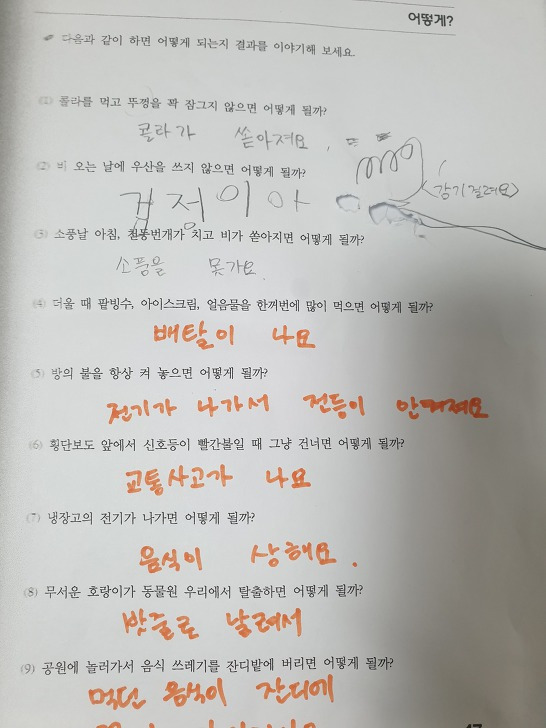 어떻게?
다음과 같이 하면 어떻게 되는지 결과를 이야기해 보세요.
(1) 콜라를 먹고 뚜껑을 꽉 잠그지 않으면 어떻게 될까?
콜라가 쏟아져요.
(2) 비 오는 날에 우산을 쓰지 않으면 어떻게 될까?
감기 걸려요
겁정이아
(3) 소풍날 아침, 천둥번개가 치고 비가 쏟아지면 어떻게 될까?
소풍을 못가요.
(4) 더울 때 팥빙수, 아이스크림, 얼음물을 한꺼번에 많이 먹으면 어떻게 될까?
배탈이 나요
(5) 방의 불을 항상 켜 놓으면 어떻게 될까?
전기가 나가서 전등이 안켜져요
(6) 횡단보도 앞에서 신호등이 빨간불일 때 그냥 건너면 어떻게 될까?
교통사고가 나요
(7) 냉장고의 전기가 나가면 어떻게 될까?
음식이 상해요.
(8) 무서운 호랑이가 동물원 우리에서 탈출하면 어떻게 될까?
밧줄로
(9) 공원에 놀러가서 음식 쓰레기를 잔디밭에 버리면 어떻게 될까?
먹던 음식이 잔디에